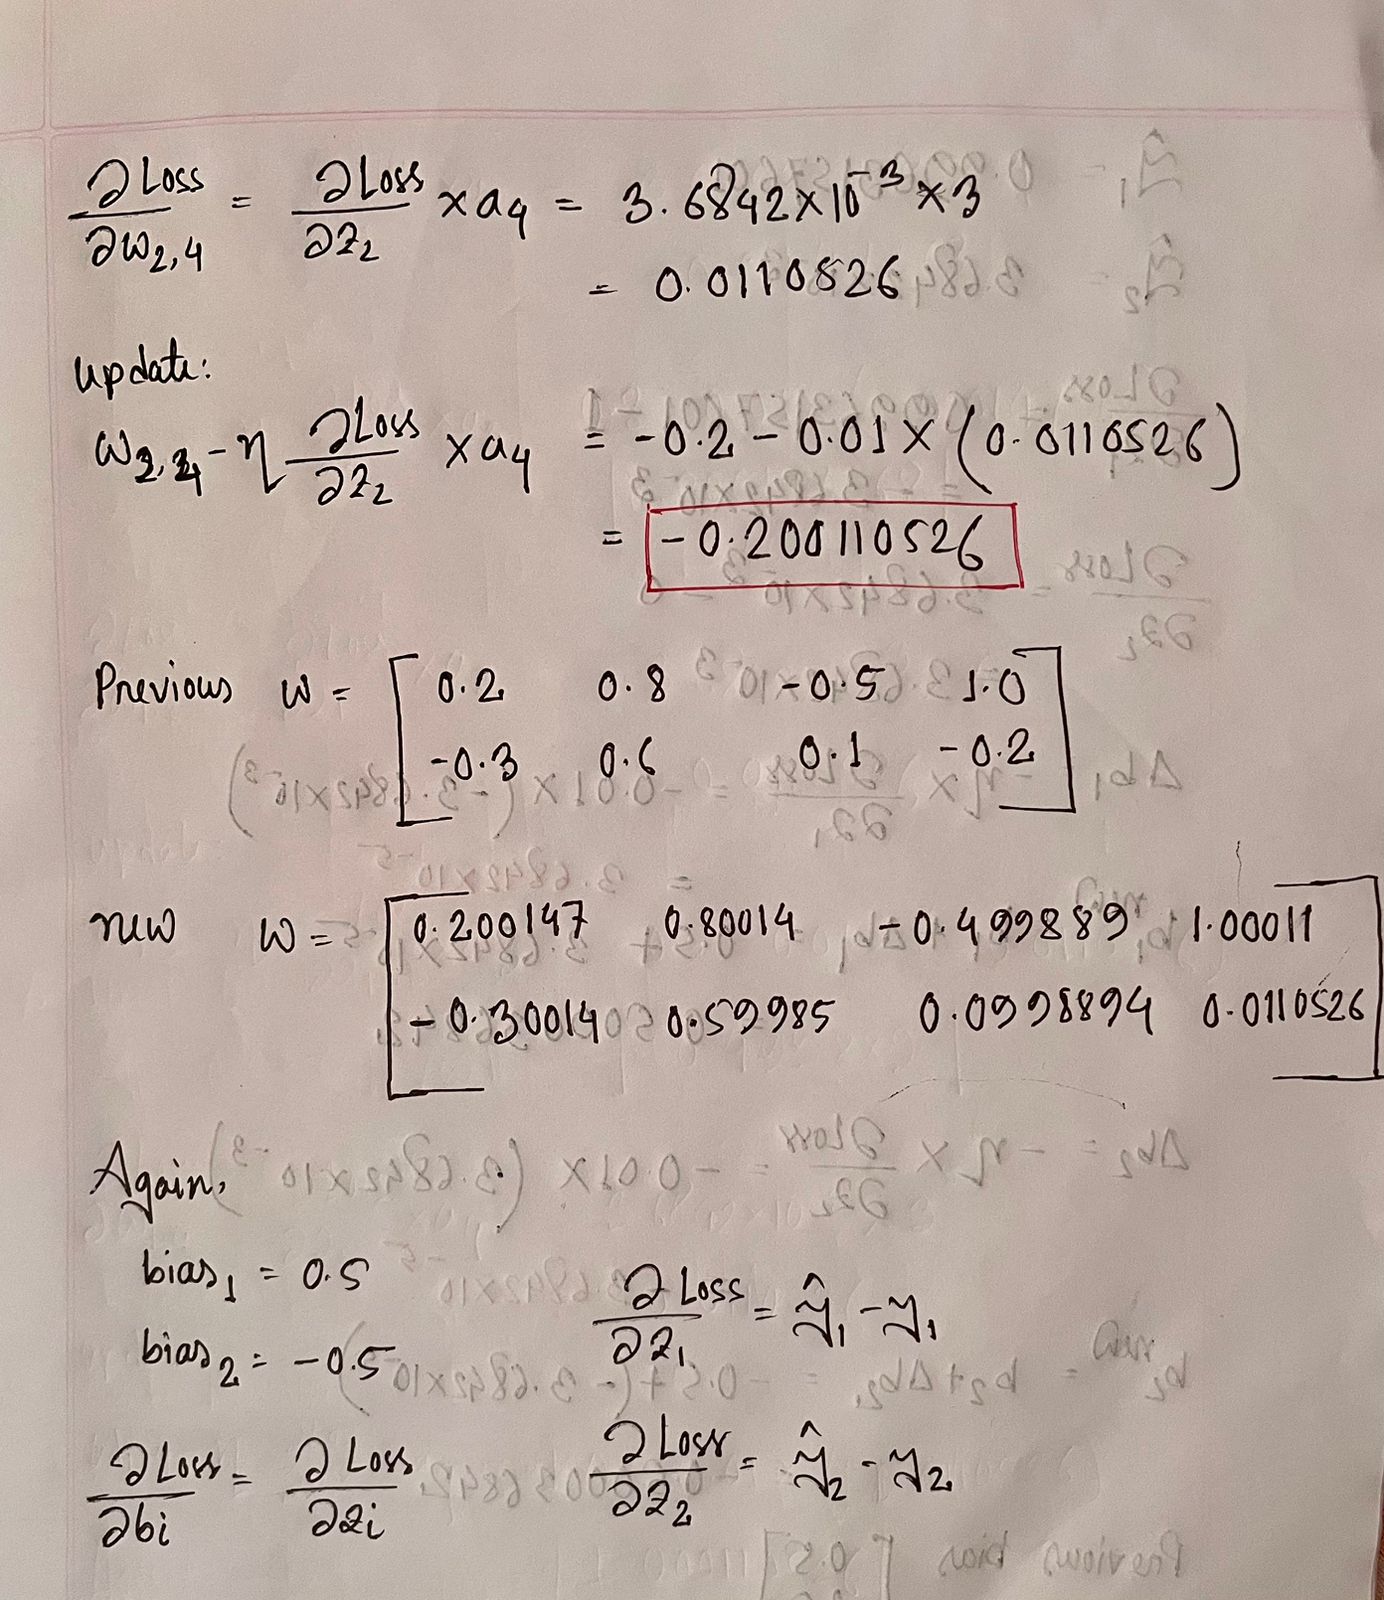 ∂Loss/∂w₂,₄ = ∂Loss/∂z₂ × a₄ = 3.6842×10⁻³ × 3
= 0.0110526
update:
w₂,₄ - η ∂Loss/∂z₂ × a₄ = -0.2 - 0.01 × (0.0110526)
= -0.200110526
Previous w = [ 0.2 0.8 -0.5 1.0
-0.3 0.6 0.1 -0.2 ]
new w = [ 0.200147 0.80014 -0.499889 1.00011
-0.30014 0.59985 0.0998894 0.0110526 ]
Again,
bias₁ = 0.5 ∂Loss/∂z₁ = ŷ₁ - y₁
bias₂ = -0.5
∂Loss/∂bi = ∂Loss/∂zi ∂Loss/∂z₂ = ŷ₂ - y₂